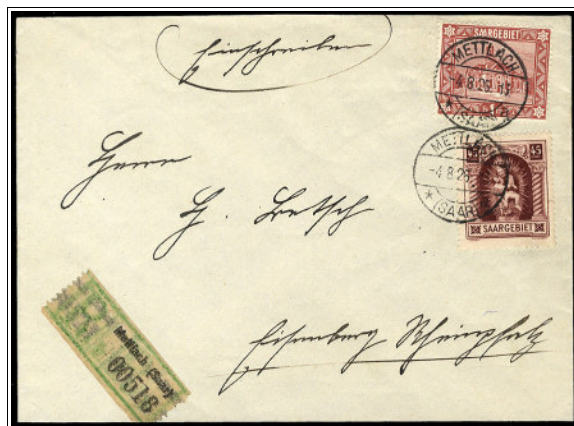 Einschreiben
SAARGEBIET
METTLACH
-4.8.29
(SAAR)
METTLACH
-4.8.29
(SAAR)
45
SAARGEBIET
Herrn
H. Betsch
Eisenberg Rheinpfalz
Mettlach (Saar)
00518